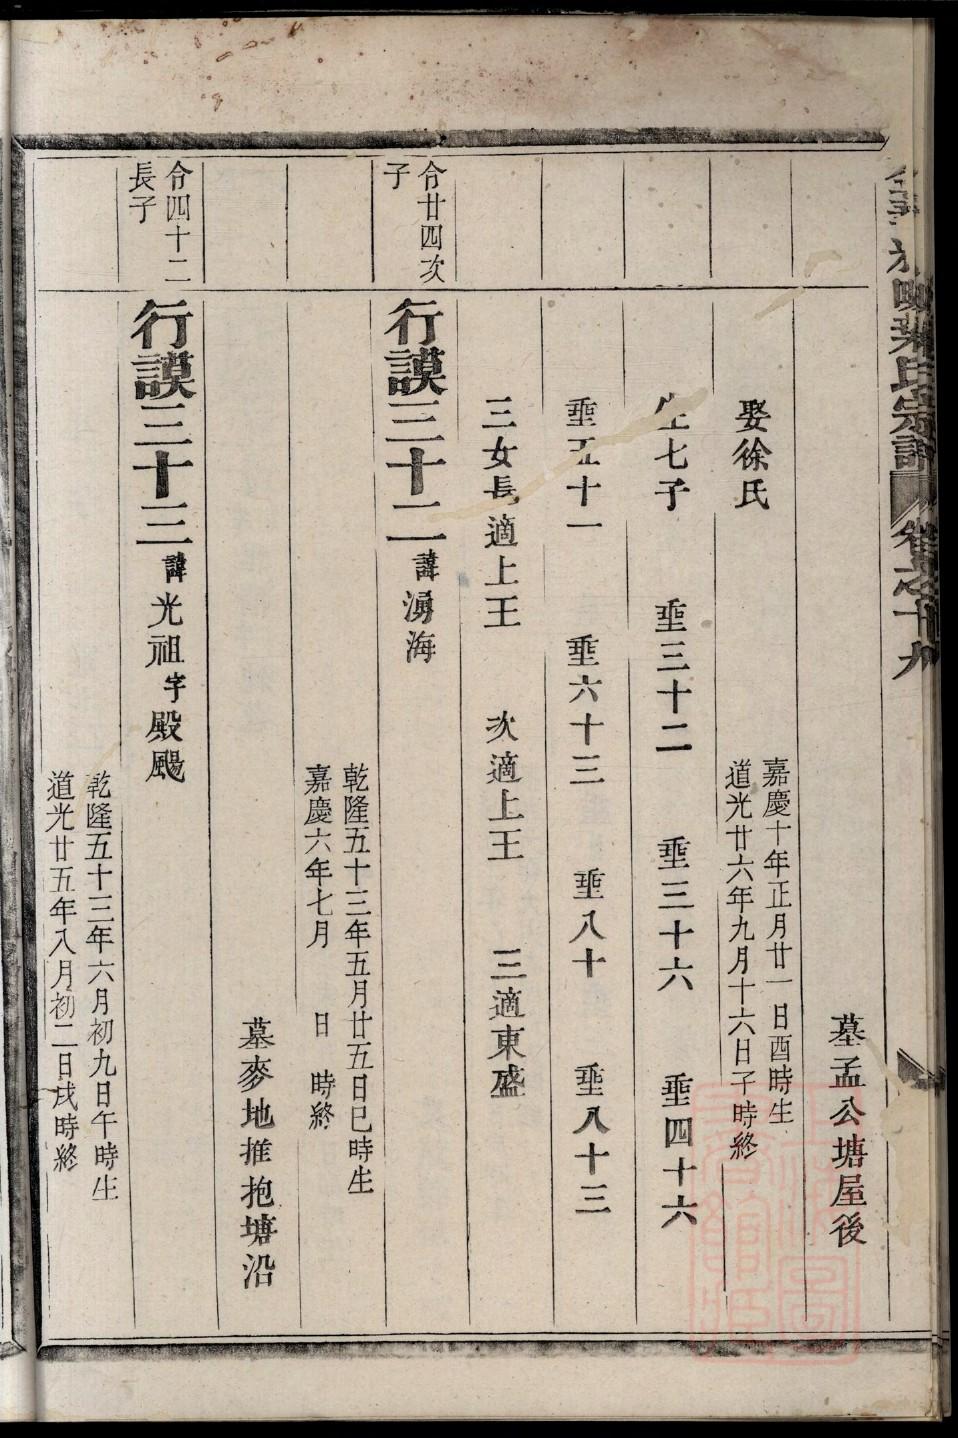 墓孟公塘屋後
娶徐氏
嘉慶十年正月廿一日酉時生
道光廿六年九月十六日子時終
生七子 垂三十二 垂三十六 垂四十六
垂五十一 垂六十三 垂八十 垂八十三
三女長適上王 次適上王 三適東盛
令廿四次子
行謨三十二諱湧海
乾隆五十三年五月廿五日巳時生
嘉慶六年七月 日 時終
墓麥地推抱塘沿
令四十二長子
行謨三十三諱光祖字殿颺
乾隆五十三年六月初九日午時生
道光廿五年八月初二日戌時終